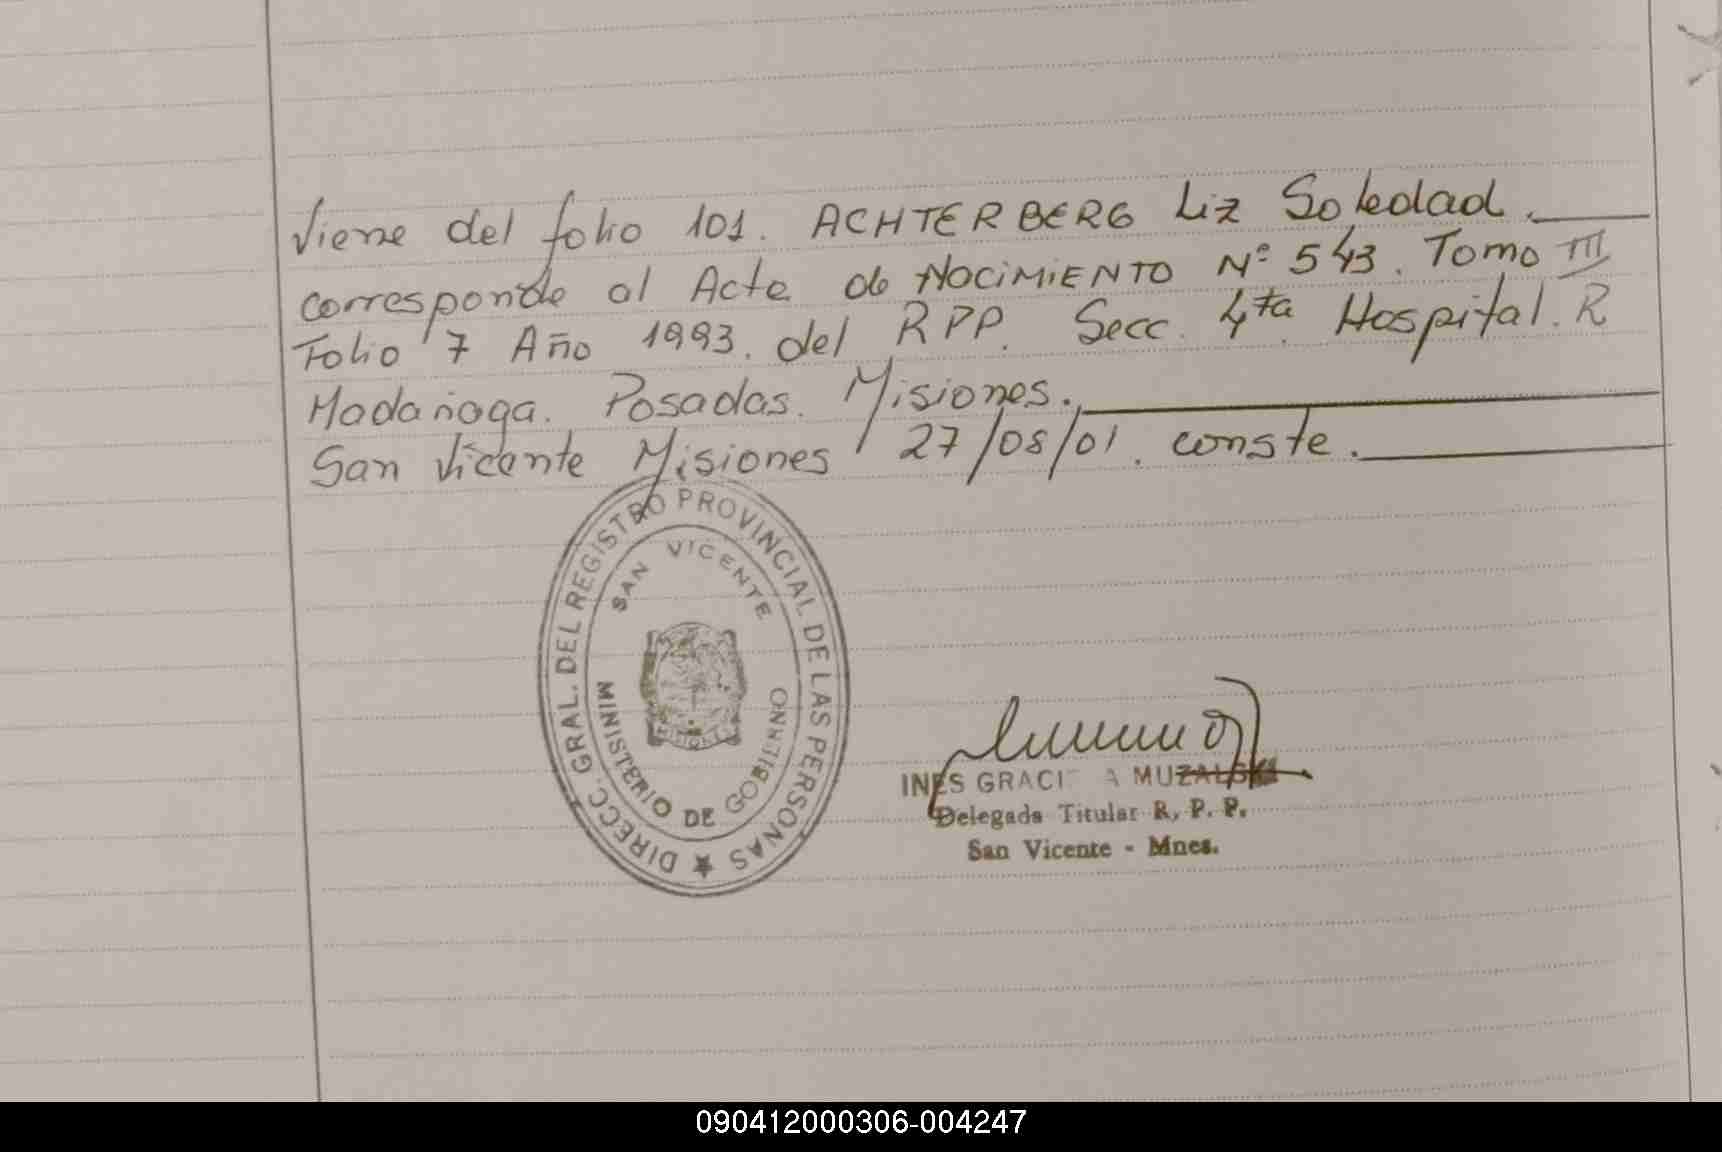 Viene del folio 101. ACHTERBERG Liz Soledad.
corresponde al Acta de NACIMIENTO Nº 543. Tomo III
Folio 7 Año 1993. del RPP. Secc. 4ta. Hospital. R
Madariaga. Posadas. Misiones.
San Vicente Misiones 27/08/01. conste.
DIRECC. GRAL. DEL REGISTRO PROVINCIAL DE LAS PERSONAS
SAN VICENTE
MISIONES
MINISTERIO DE GOBIERNO
INES GRACI A
Delegada Titular R. P. P.
San Vicente - Mnes.
090412000306-004247